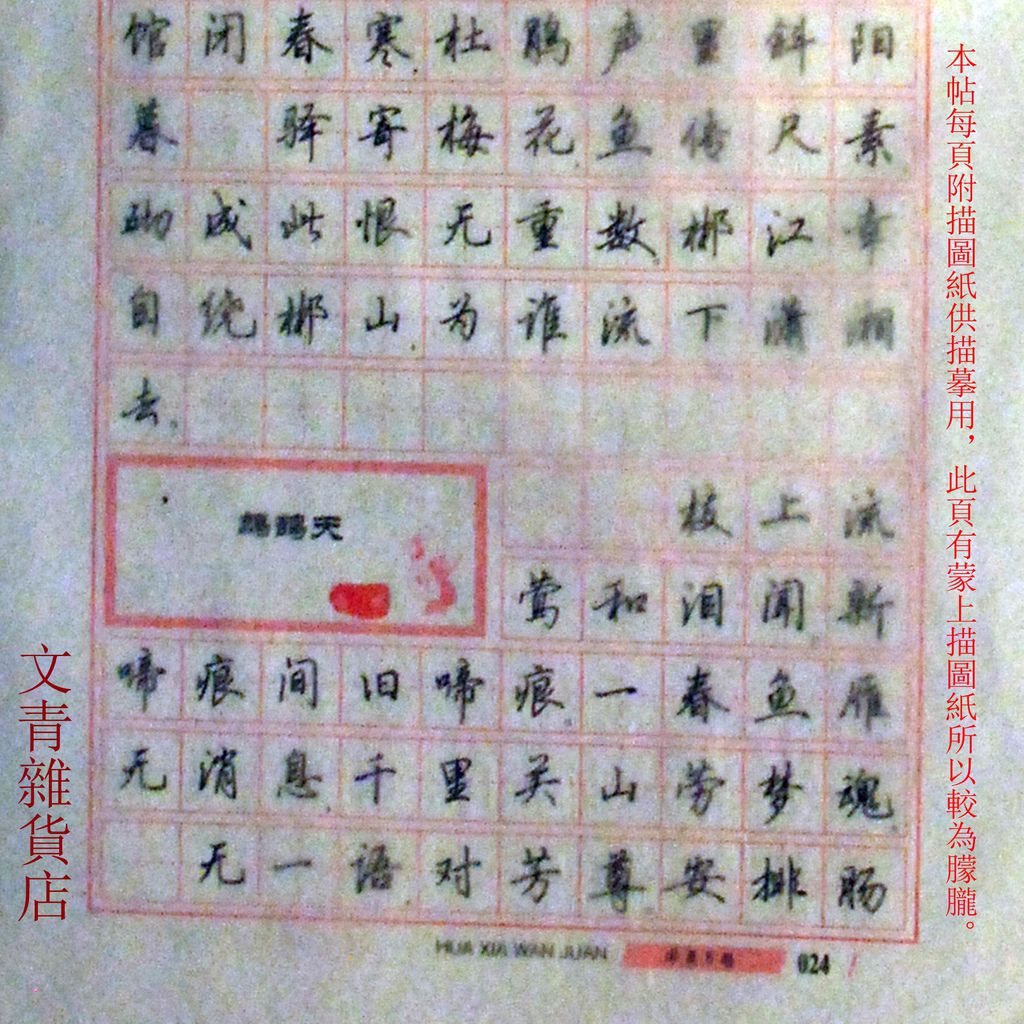 馆闭春寒杜鹃声里斜阳
暮 驿寄梅花鱼传尺素
砌成此恨无重数郴江幸
自绕郴山为谁流下潇湘
去。
鹧鸪天
枝上流
莺和泪闻新
啼痕间旧啼痕。一春鱼雁
无消息千里关山劳梦魂
无一语对芳尊安排肠
HUA XIA WAN JUAN
024
本帖每頁附描圖紙供描摹用，此頁有蒙上描圖紙所以較為朦朧。
文青雜貨店